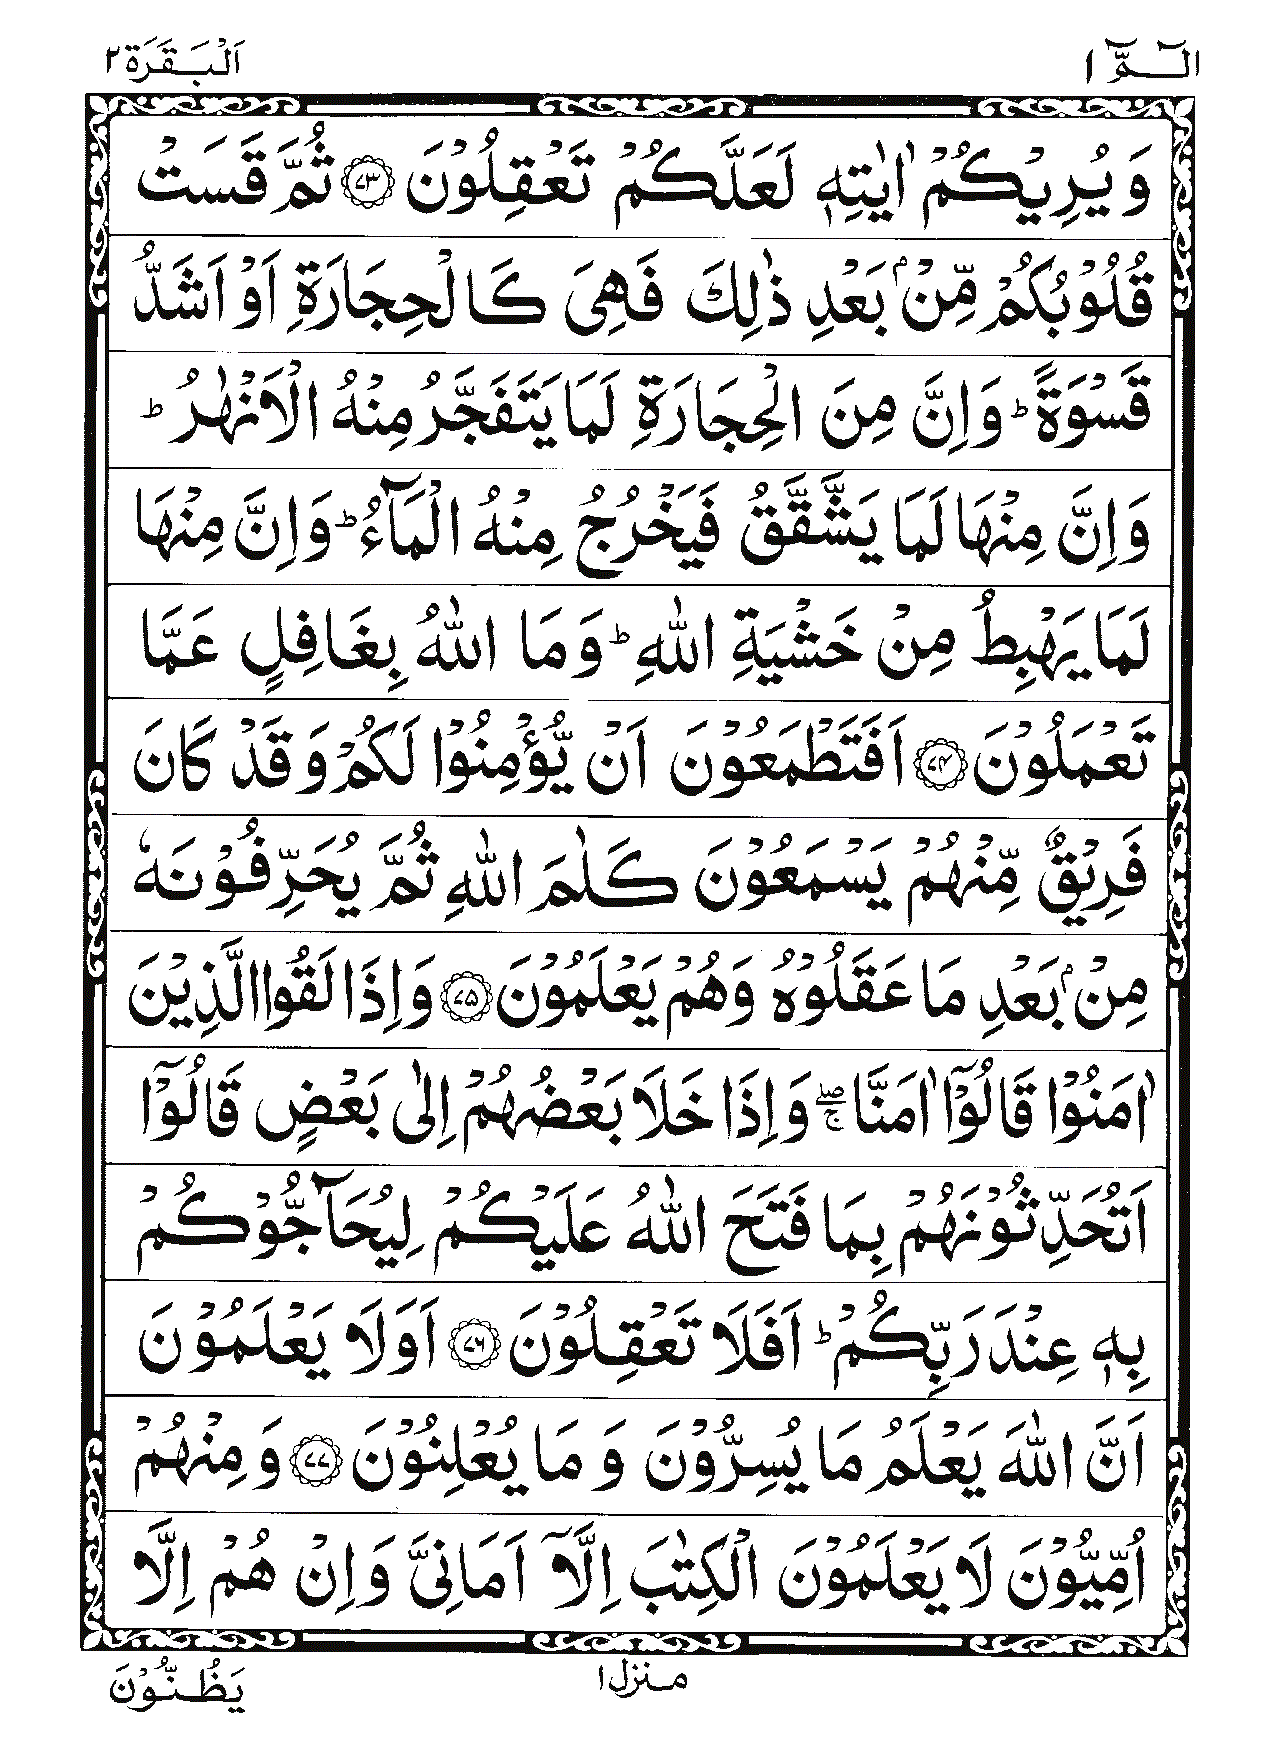 الٓـمّٓ ١
اَلْبَقَرَة ٢
وَ يُرِيْكُمْ اٰيٰتِهٖ لَعَلَّكُمْ تَعْقِلُوْنَ ﴿۷۳﴾ ثُمَّ قَسَتْ
قُلُوْبُكُمْ مِّنْۢ بَعْدِ ذٰلِكَ فَهِىَ كَالْحِجَارَةِ اَوْ اَشَدُّ
قَسْوَةً ؕ وَاِنَّ مِنَ الْحِجَارَةِ لَمَا يَتَفَجَّرُ مِنْهُ الْاَنْهٰرُ ؕ
وَاِنَّ مِنْهَا لَمَا يَشَّقَّقُ فَيَخْرُجُ مِنْهُ الْمَآءُ ؕ وَاِنَّ مِنْهَا
لَمَا يَهْبِطُ مِنْ خَشْيَةِ اللّٰهِ ؕ وَمَا اللّٰهُ بِغَافِلٍ عَمَّا
تَعْمَلُوْنَ ﴿۷۴﴾ اَفَتَطْمَعُوْنَ اَنْ يُّؤْمِنُوْا لَكُمْ وَقَدْ كَانَ
فَرِيْقٌ مِّنْهُمْ يَسْمَعُوْنَ كَلٰمَ اللّٰهِ ثُمَّ يُحَرِّفُوْنَهٗ
مِنْۢ بَعْدِ مَا عَقَلُوْهُ وَهُمْ يَعْلَمُوْنَ ﴿۷۵﴾ وَاِذَا لَقُوا الَّذِيْنَ
اٰمَنُوْا قَالُوْٓا اٰمَنَّا ۖۚ وَاِذَا خَلَا بَعْضُهُمْ اِلٰى بَعْضٍ قَالُوْٓا
اَتُحَدِّثُوْنَهُمْ بِمَا فَتَحَ اللّٰهُ عَلَيْكُمْ لِيُحَآجُّوْكُمْ
بِهٖ عِنْدَ رَبِّكُمْ ؕ اَفَلَا تَعْقِلُوْنَ ﴿۷۶﴾ اَوَلَا يَعْلَمُوْنَ
اَنَّ اللّٰهَ يَعْلَمُ مَا يُسِرُّوْنَ وَ مَا يُعْلِنُوْنَ ﴿۷۷﴾ وَ مِنْهُمْ
اُمِّيُّوْنَ لَا يَعْلَمُوْنَ الْكِتٰبَ اِلَّآ اَمَانِىَّ وَاِنْ هُمْ اِلَّا
منزل ١
يَظُنُّوْنَ